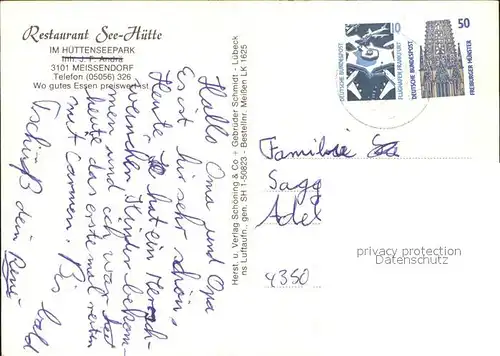 Restaurant See-Hütte
IM HÜTTENSEEPARK
Inh. J. P. Andrä
3101 MEISSENDORF
Telefon (05056) 326
Wo gutes Essen preiswert ist.
Hallo Oma und Opa
Es ist hir sehr schön,
Heute hat ein Mersch-
weinchen Kinder bekom-
men und ich war
heute das erste mal reiten
mit Carmen. Bis bald
Tschüß dein René
Herst. u. Verlag Schöning & Co + Gebrüder Schmidt, Lübeck
ns Luftaufn., gen. SH 1-50823 - Bestellnr. Meißen LK 1625
10
DEUTSCHE BUNDESPOST
FLUGHAFEN FRANKFURT
50
DEUTSCHE BUNDESPOST
FREIBURGER MÜNSTER
Familie
Sagg
Adel
4350
privacy protection
Datenschutz